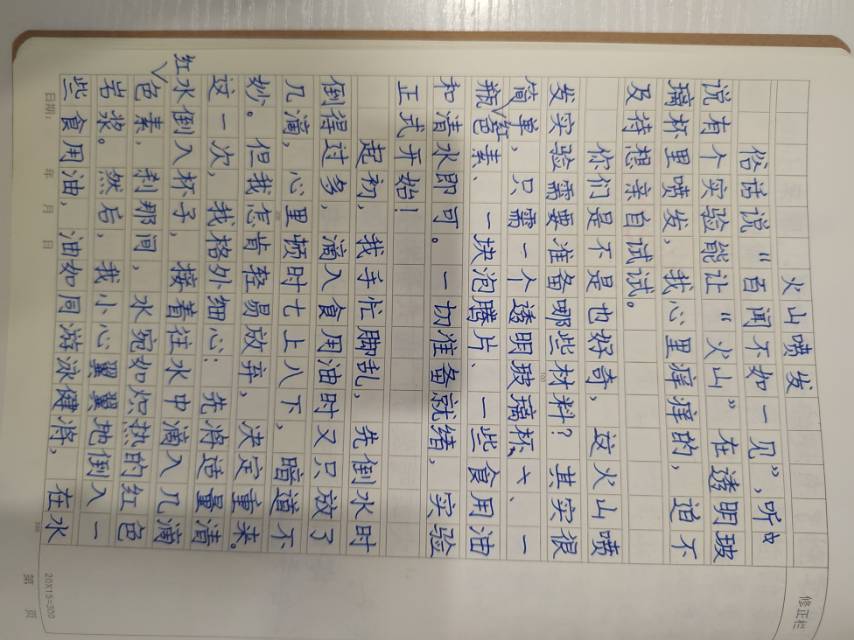 修正栏
火山喷发
俗话说“百闻不如一见”,听
说有个实验能让“火山”在透明玻
璃杯里喷发,我心里痒痒的,迫不
及待想亲自试试。
你们是不是也好奇,这火山喷
发实验需要准备哪些材料?其实很
简单,只需一个透明玻璃杯、一
瓶红色素、一块泡腾片、一些食用油
和清水即可。一切准备就绪,实验
正式开始!
起初,我手忙脚乱,先倒水时
倒得过多,滴入食用油时又只放了
几滴,心里顿时七上八下,暗道不
妙。但我怎肯轻易放弃,决定重来。
这一次,我格外细心:先将适量清
水倒入杯子,接着往水中滴入几滴
红色素,刹那间,水宛如炽热的红色
岩浆。然后,我小心翼翼地倒入一
些食用油,油如同游泳健将,在水
日期: 年 月 日
20X15=300
第 页